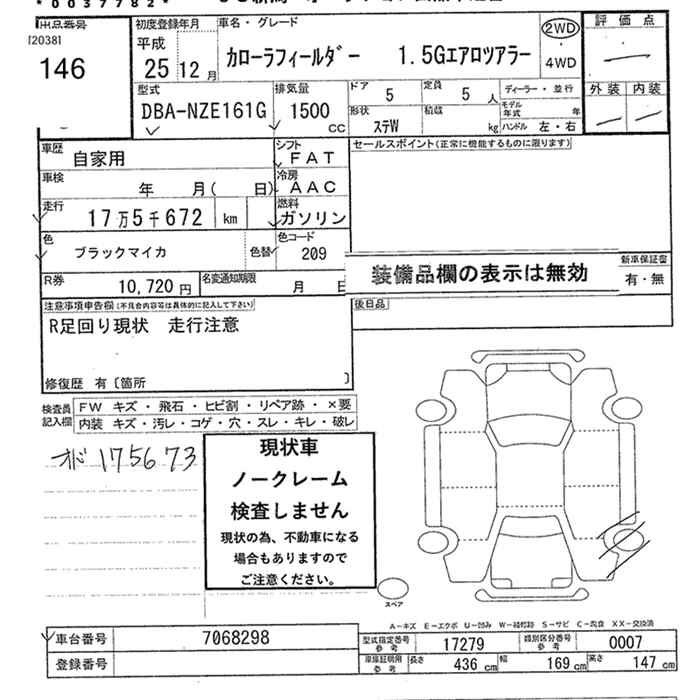 * 0037782 *
出品番号
[2038]
146
初度登録年月
平成
25 12 月
車名・グレード
カローラフィールダー 1.5Gエアロツアラー
2WD
・
4WD
評価点
外装 内装
型式
DBA-NZE161G
排気量
1500
CC
ドア 5
定員 5 人
形状
ステW
積載
kg
ディーラー・並行
モデル
年式 年
ハンドル 左・右
車歴
自家用
シフト
FAT
車検
年 月( 日)
冷房
AAC
走行
17万5千672 km
燃料
ガソリン
色
ブラックマイカ
色替
色コード
209
R券
10,720 円
名変通知期限
月 日
セールスポイント(正常に機能するものに限ります)
装備品欄の表示は無効
新車保証書
有・無
注意事項申告欄(不具合内容等は具体的に記入して下さい)
R足回り現状 走行注意
修復歴 有〔箇所 〕
後日品
検査員
記入欄
FW キズ・飛石・ヒビ割・リペア跡・×要
内装 キズ・汚レ・コゲ・穴・スレ・キレ・破レ
オド 175673
現状車
ノークレーム
検査しません
現状の為、不動車になる
場合もありますので
ご注意ください。
スペア
A-キズ E-エクボ U-凹み W-補修跡 S-サビ C-腐食 XX-交換済
車台番号 7068298
登録番号
型式指定番号
参考
17279
類別区分番号
参考
0007
車庫証明用
参考
長さ 436 cm
幅 169 cm
高さ 147 cm